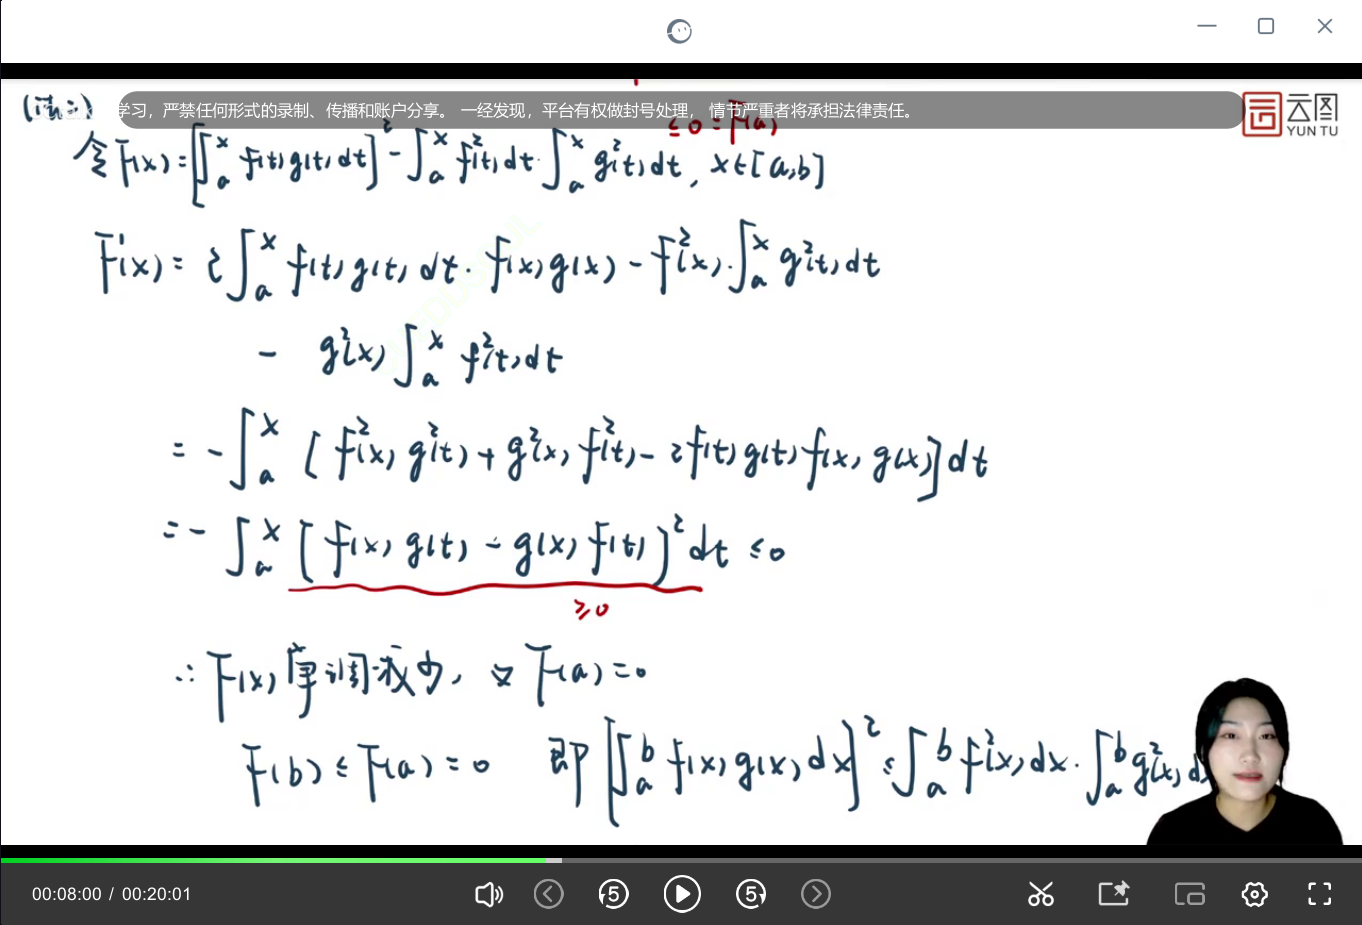 学习，严禁任何形式的录制、传播和账户分享。 一经发现，平台有权做封号处理， 情节严重者将承担法律责任。
云图
YUN TU
≤0=F(a)
令F(x)=[∫ₐˣ f(t)g(t)dt]²-∫ₐˣ f²(t)dt·∫ₐˣ g²(t)dt, x∈[a,b]
F'(x)=2∫ₐˣ f(t)g(t)dt·f(x)g(x)-f²(x)·∫ₐˣ g²(t)dt
- g²(x)∫ₐˣ f²(t)dt
=-∫ₐˣ [f²(x)g²(t)+g²(x)f²(t)-2f(t)g(t)f(x)g(x)]dt
=-∫ₐˣ [f(x)g(t)-g(x)f(t)]²dt≤0
≥0
∴F(x)单调减少, 又F(a)=0
F(b)≤F(a)=0 即[∫ₐᵇ f(x)g(x)dx]²≤∫ₐᵇ f²(x)dx·∫ₐᵇ g²(x)d
00:08:00 / 00:20:01
5
5